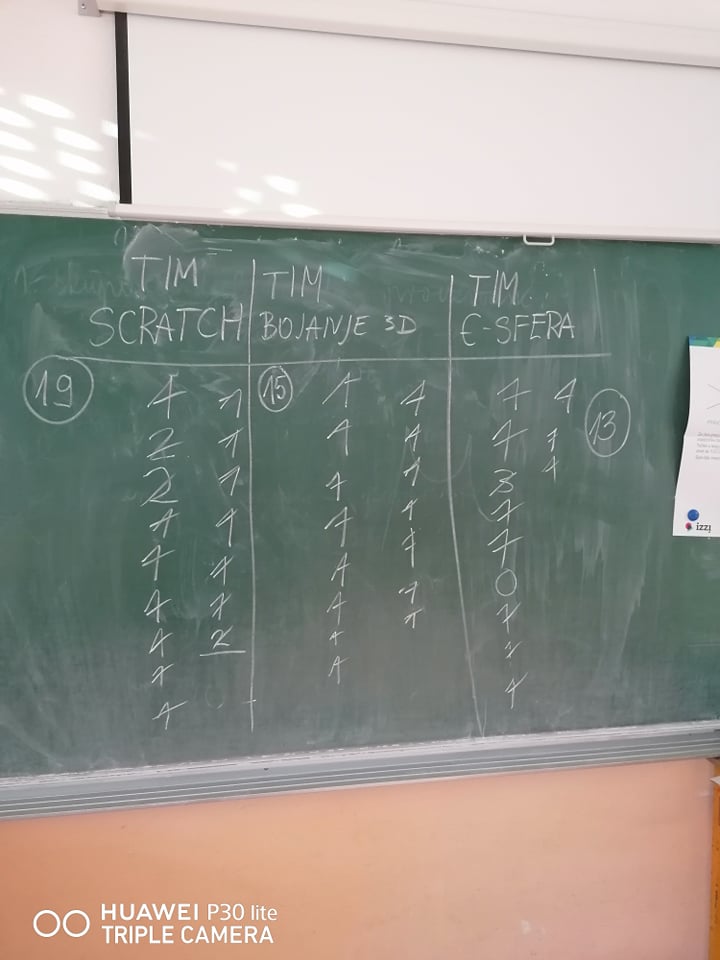 TIM TIM TIM
SCRATCH BOJANJE 3D E-SFERA
19 1 1 15 1 1 1 1 13
2 1 1 1 1 1
2 1 1 1 3 1
1 1 1 1 1
1 1 1 1 1
1 1 1 1 0
1 2 1 1 1
1 1 1
1 1
izzi
HUAWEI P30 lite
TRIPLE CAMERA